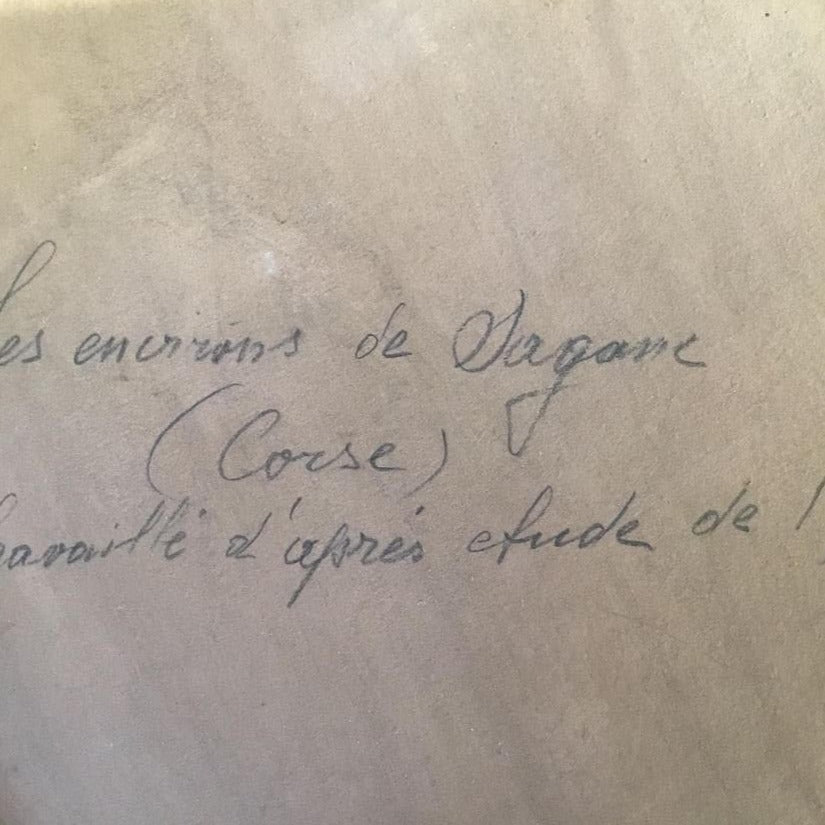 Les environs de Sagone
(Corse)
travaillé d'après etude de